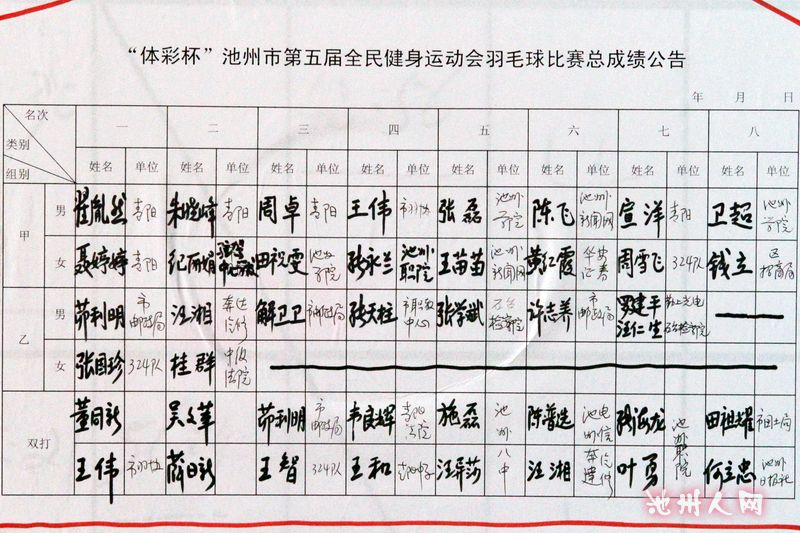 “体彩杯”池州市第五届全民健身运动会羽毛球比赛总成绩公告
年 月 日
名次 类别 组别 一 二 三 四 五 六 七 八
姓名 单位 姓名 单位 姓名 单位 姓名 单位 姓名 单位 姓名 单位 姓名 单位 姓名 单位
甲 男 翟胤然 青阳 朱晓峰 青阳 周卓 青阳 王伟 市羽协 张磊 池州学院 陈飞 池州新闻网 宣洋 青阳 卫超 池州学院
女 聂婷婷 青阳 纪丽娟 田祝雯 池州学院 张永兰 池州职院 王苗苗 池州新闻网 黄红霞 华安证券 周雪飞 324队 钱立 区招商局
乙 男 茆利明 市邮政局 汪湘 解卫卫 市邮政局 张天柱 中心 张学斌 检察院 许志养 市邮政局 罗建平 汪仁生
女 张国珍 324队 桂群 中级法院
双打 董同新 吴文革 茆利明 市邮政局 韦良辉 青阳法院 施磊 池州八中 陈普选 池州电信 池州职院 田祖耀 市国土局
王伟 市羽协 薛日新 王智 324队 王和 汪屏莎 汪湘 叶勇 何立忠 池州日报社
池州人网